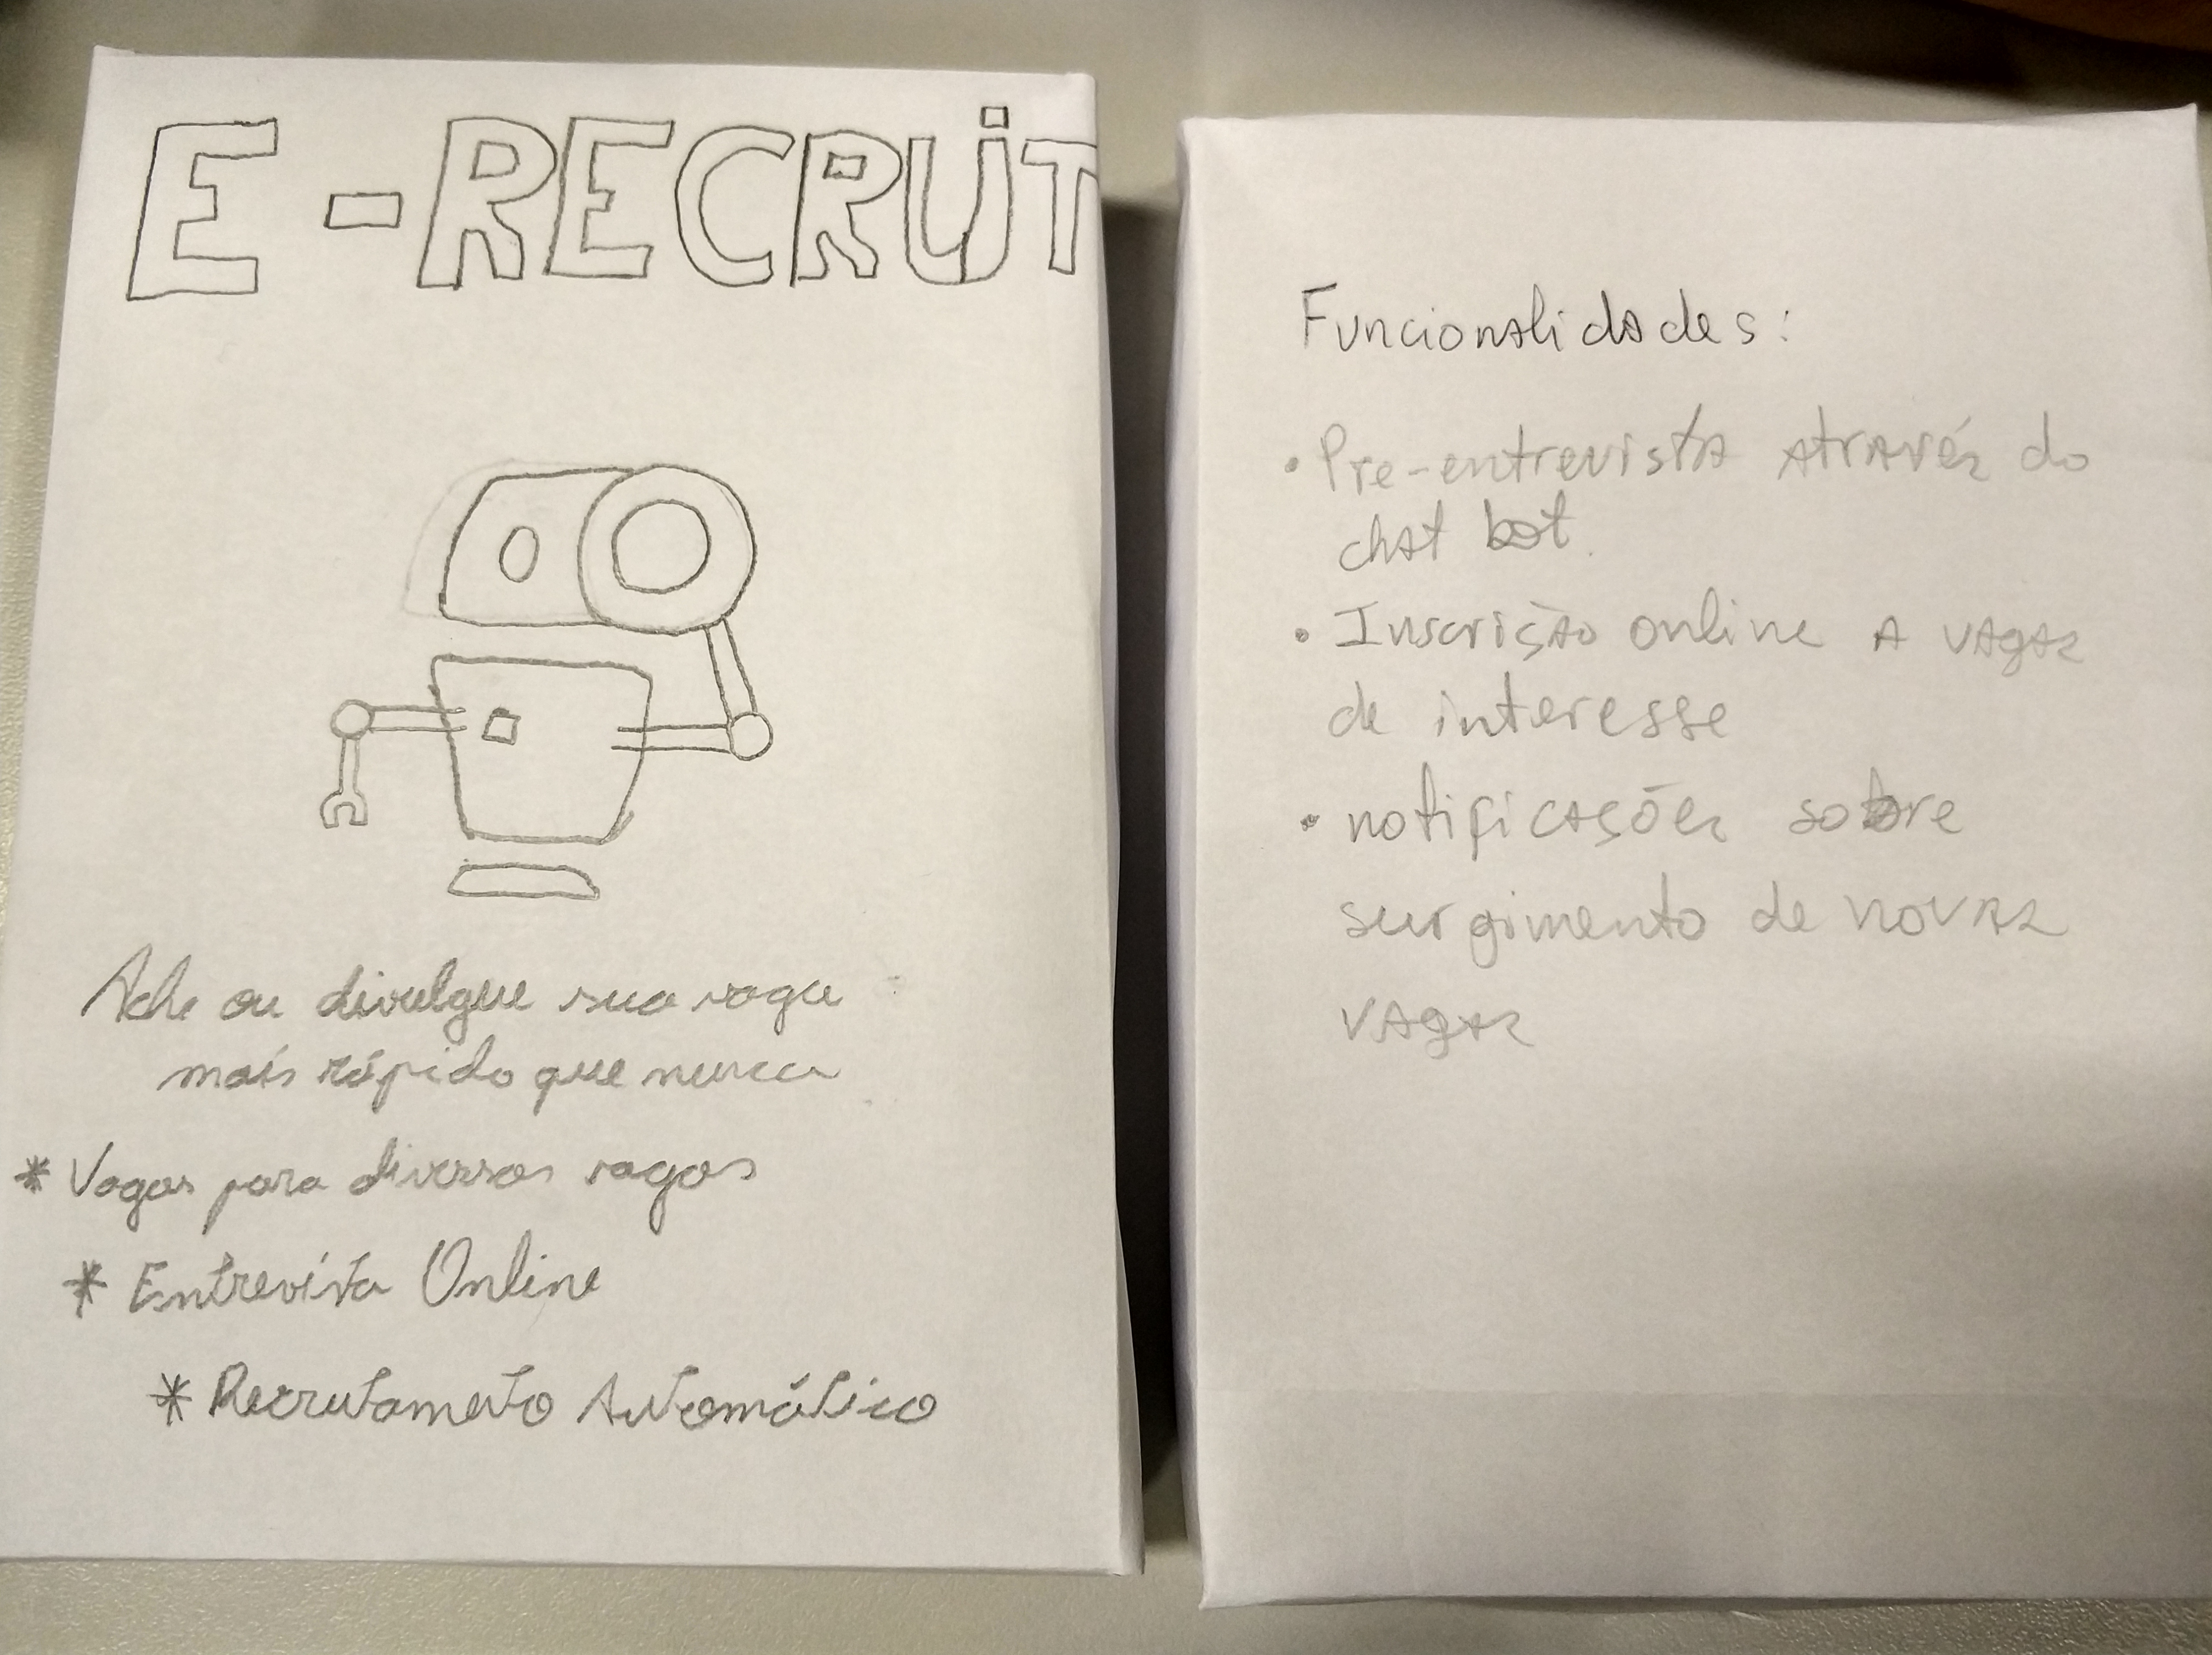 E-RECRUiT
Ache ou divulgue sua vaga
mais rápido que nunca
* Vagas para diversas vagas
* Entrevista Online
* Recrutamento Automático
Funcionalidades:
• Pre-entrevista através do
chat bot.
• Inscrição online a vagas
de interesse
• notificações sobre
surgimento de novas
vagas